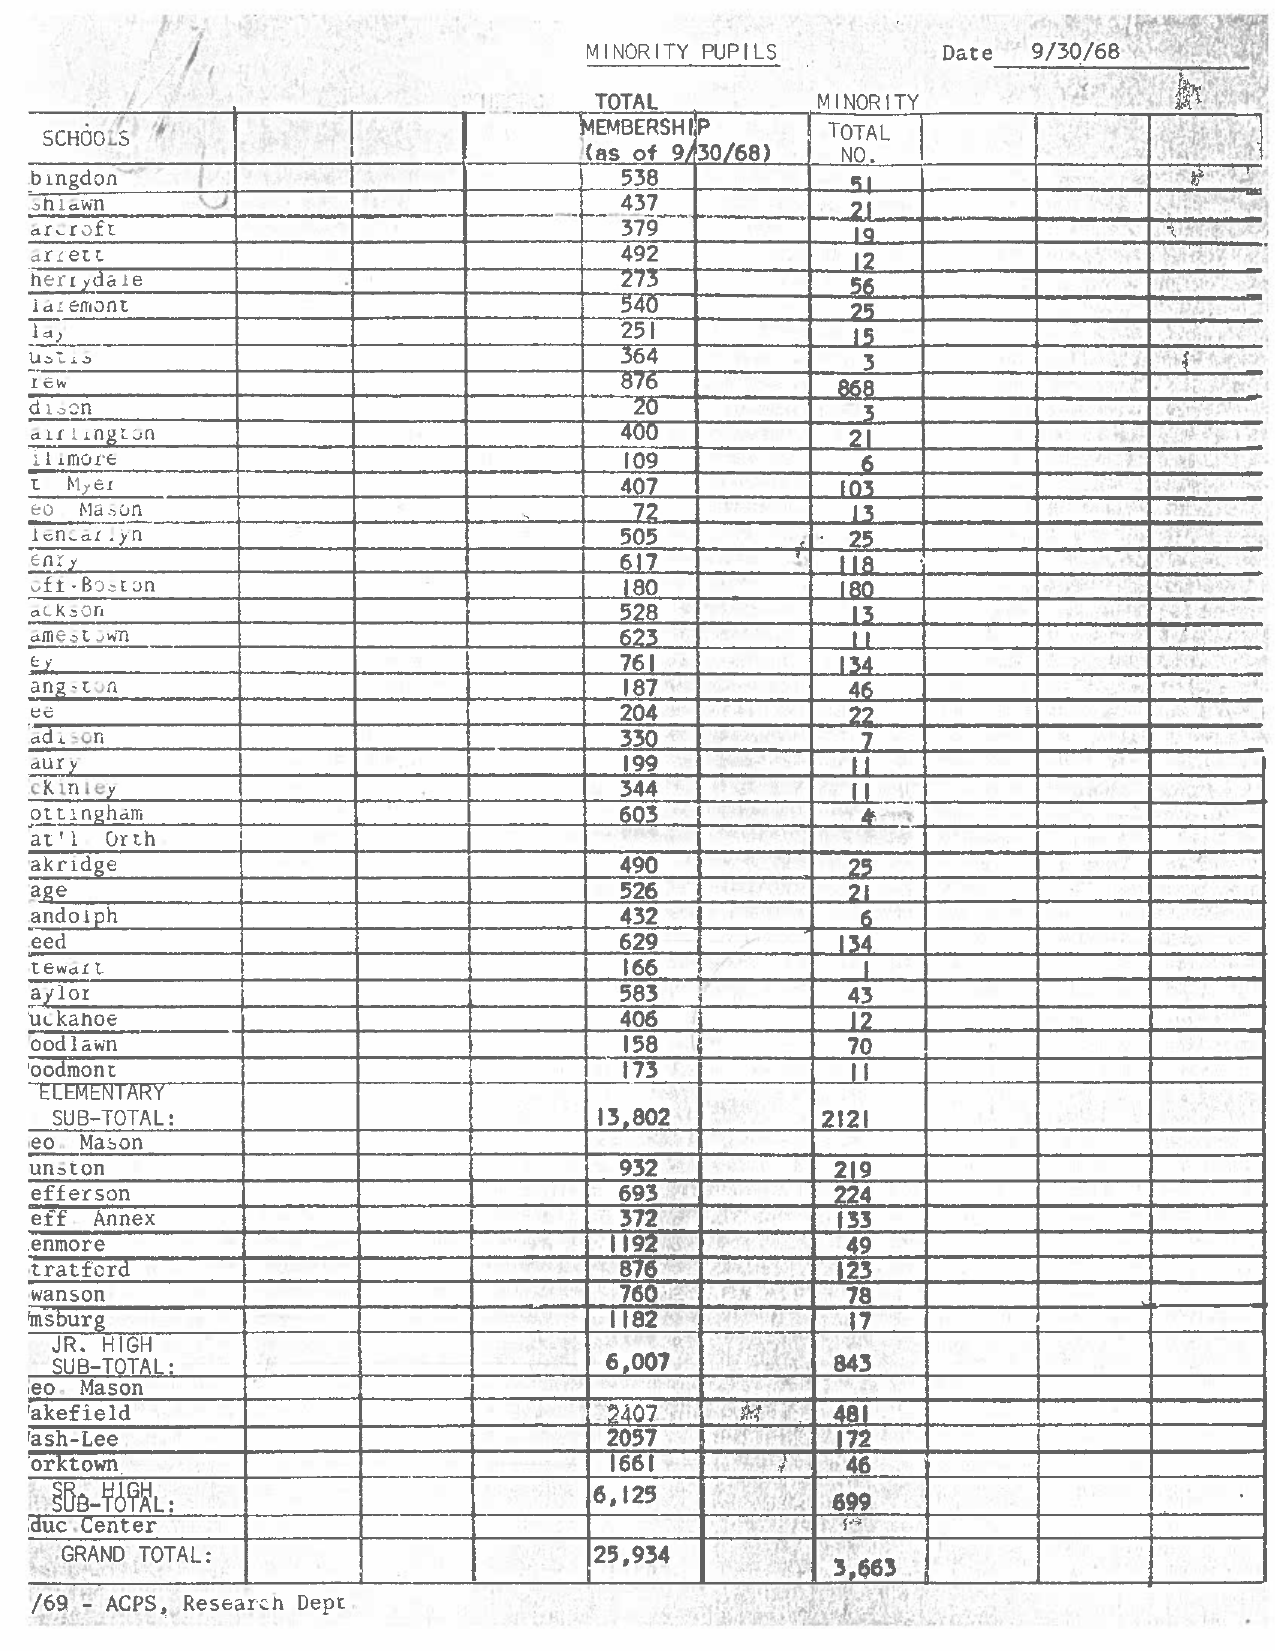 MINORITY PUPILS Date 9/30/68
TOTAL MINORITY
SCHOOLS MEMBERSHIP TOTAL
(as of 9/30/68) NO.
bingdon 538 51
shlawn 437 21
arcroft 379 19
arrett 492 12
herrydale 273 56
laremont 540 25
lay 251 15
ustis 364 3
rew 876 868
dison 20 3
airlington 400 21
illmore 109 6
t Myer 407 103
eo Mason 72 13
lencarlyn 505 25
enry 617 118
off-Boston 180 180
ackson 528 13
amestown 623 11
ey 761 134
angston 187 46
ee 204 22
adison 330 7
aury 199 11
cKinley 344 11
ottingham 603 4
at'l Orth
akridge 490 25
age 526 21
andolph 432 6
eed 629 134
tewart 166 1
aylor 583 43
uckahoe 406 12
oodlawn 158 70
oodmont 173 11
ELEMENTARY
SUB-TOTAL: 13,802 2121
eo. Mason
unston 932 219
efferson 693 224
eff Annex 372 133
enmore 1192 49
tratford 876 123
wanson 760 78
msburg 1182 17
JR. HIGH
SUB-TOTAL: 6,007 843
eo. Mason
akefield 2407 481
ash-Lee 2057 172
orktown 1661 46
SR. HIGH
SUB-TOTAL: 6,125 699
duc.Center
GRAND TOTAL: 25,934 3,663
/69 - ACPS, Research Dept.